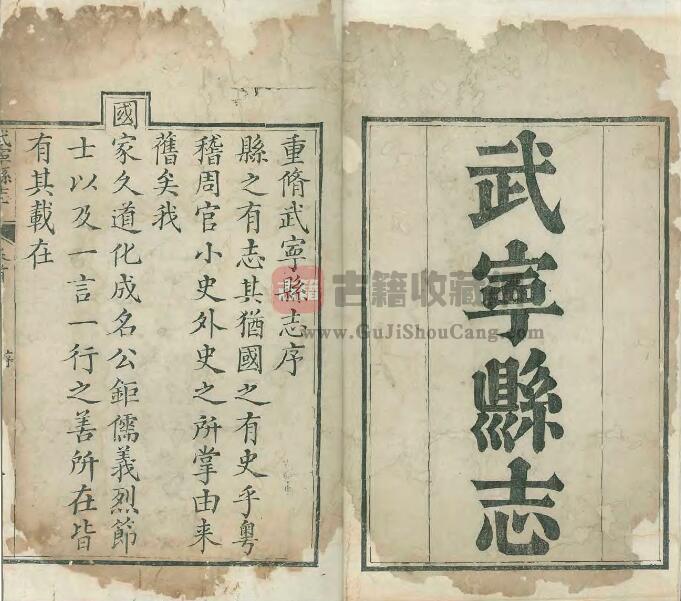 武寧縣志
重脩武寧縣志序
縣之有志其猶國之有史乎粵
稽周官小史外史之所掌由来
舊矣我
國家久道化成名公鉅儒義烈節
士以及一言一行之善所在皆
有其載在
武寧縣志
序
古籍
古籍收藏
www.GuJiShouCang.com